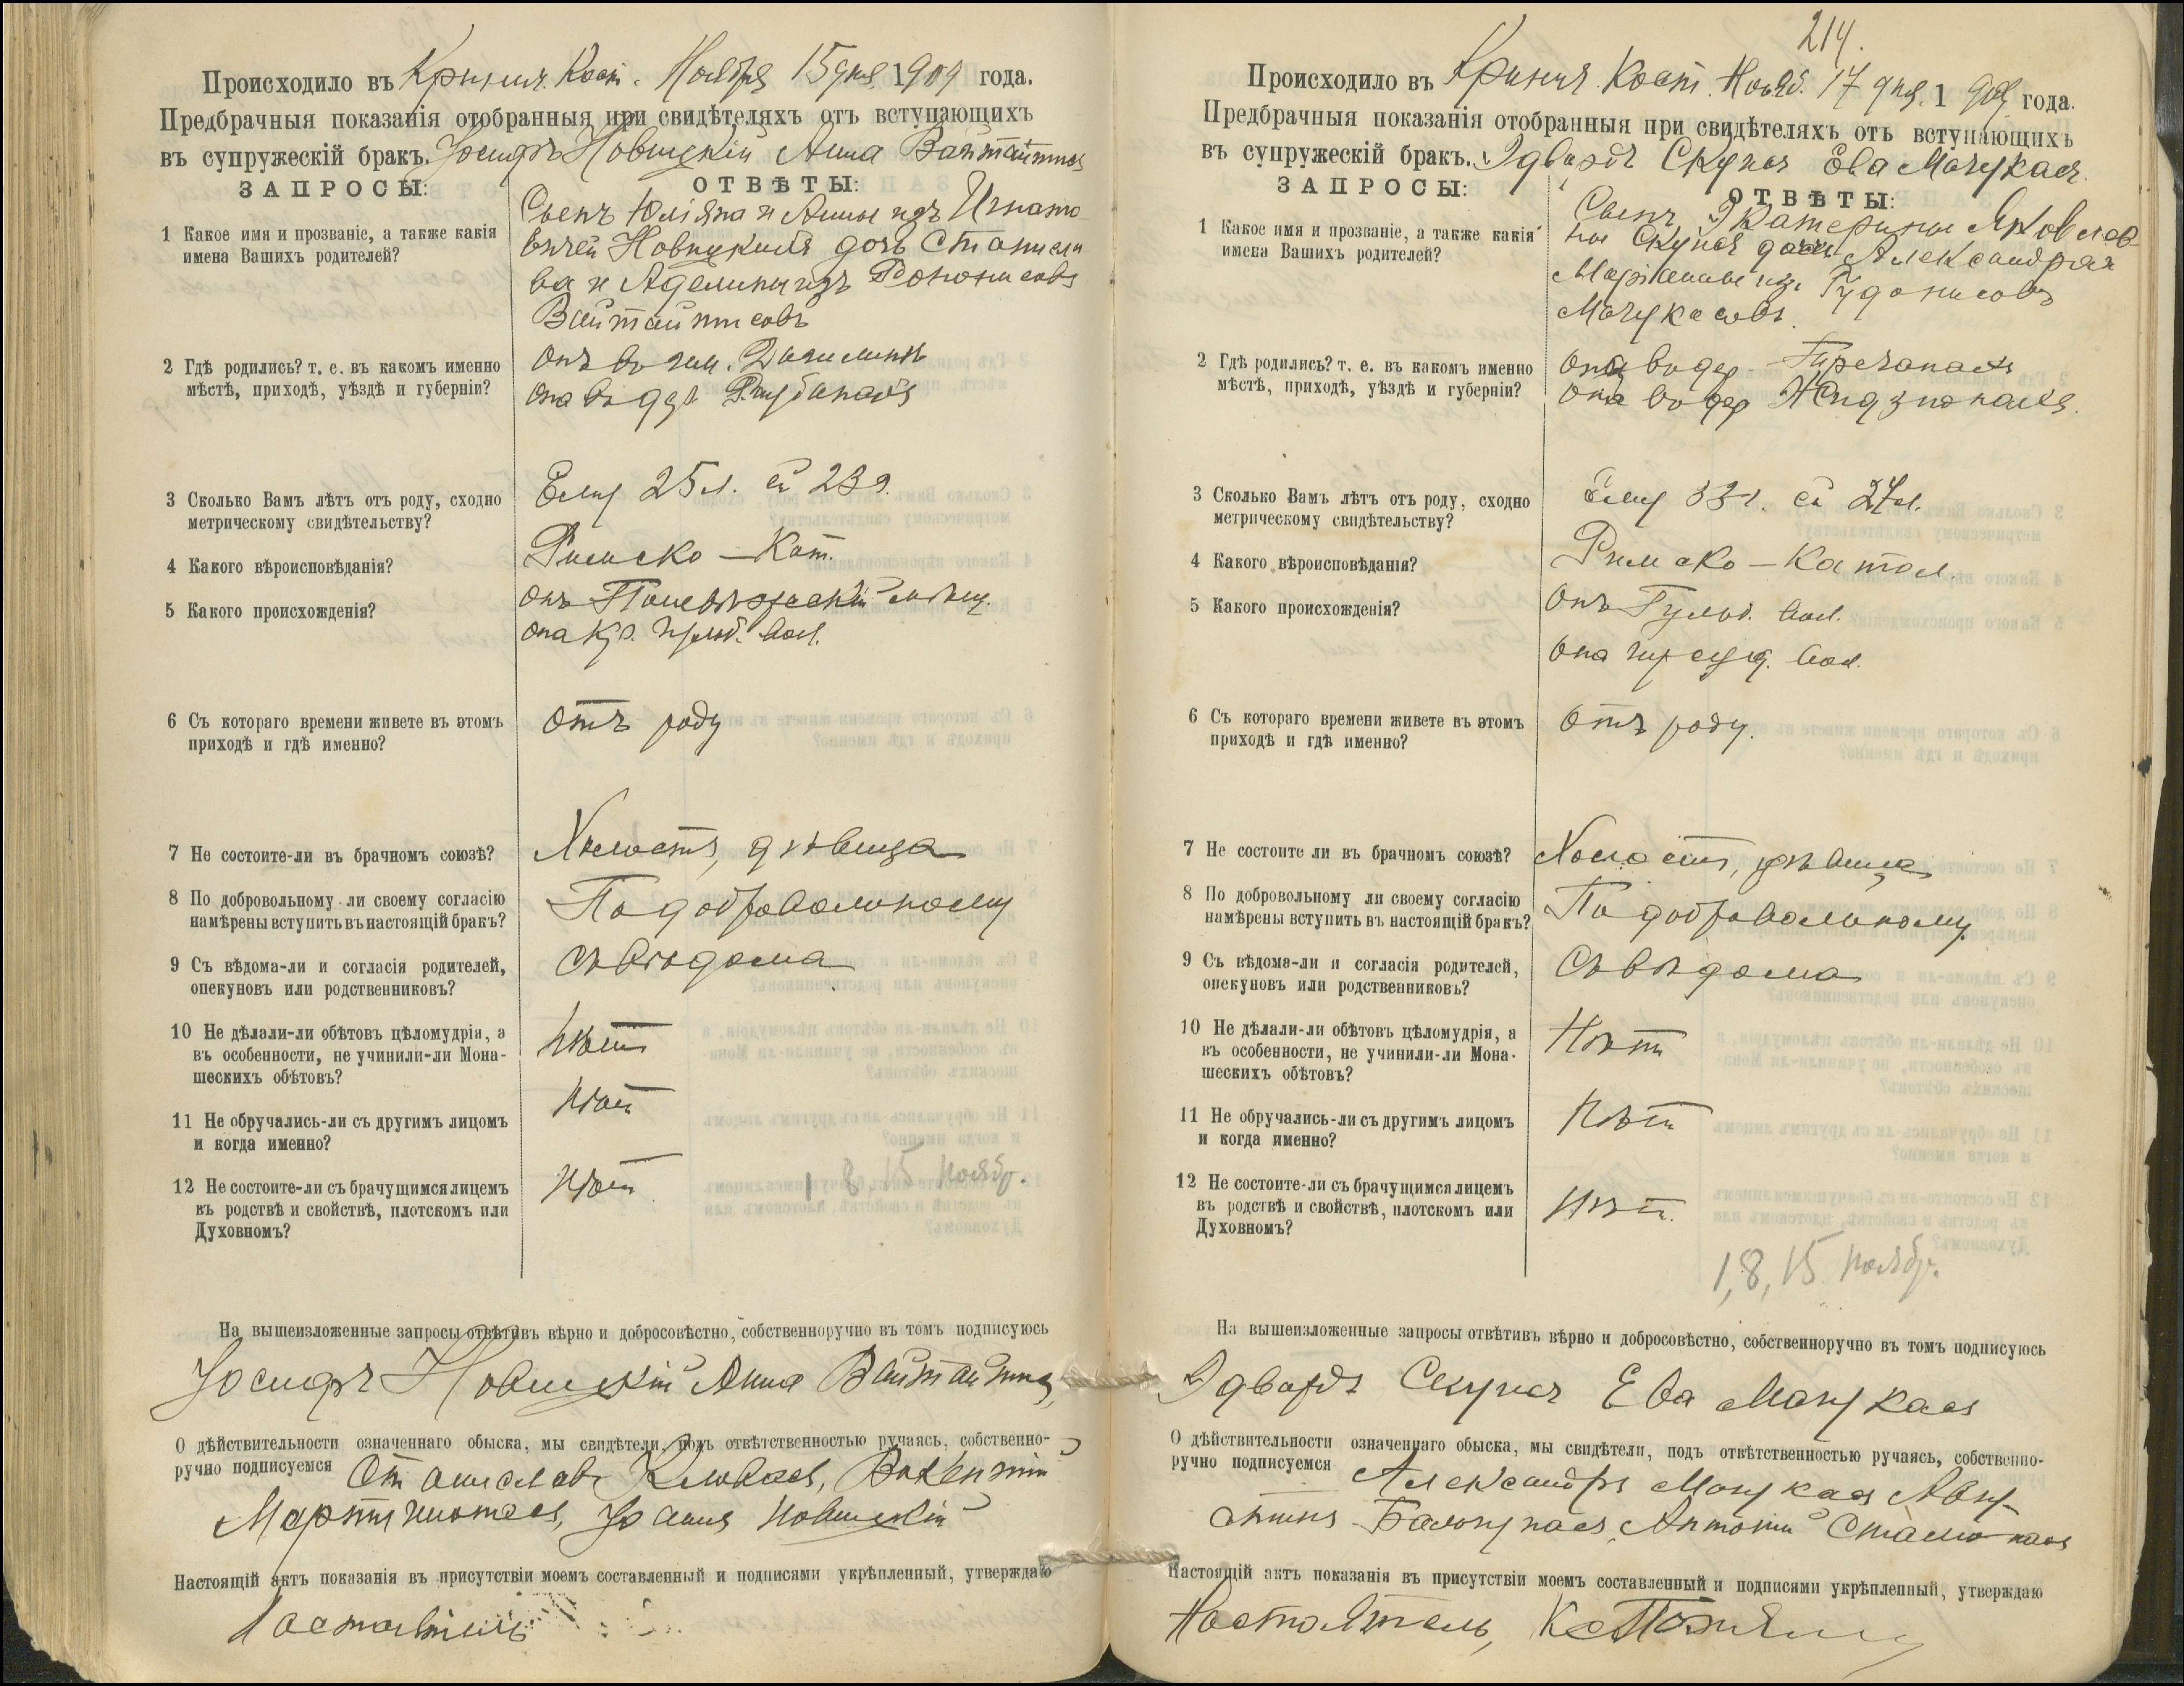 Происходило въ Кринич. Кост. Ноября 15 дня 1909 года.
Предбрачныя показанія отобранныя при свидѣтеляхъ отъ вступающихъ
въ супружескій бракъ. Іосифъ Новицкій Анна Вайтайтисъ
ЗАПРОСЫ:
ОТВѢТЫ:
1 Какое имя и прозваніе, а также какія
имена Вашихъ родителей?
Сынъ Юліяна и Анны изъ Игнато
вичей Новицкихъ дочь Станисла
ва и Аделины изъ
Вайтайтисовъ
2 Гдѣ родились? т. е. въ какомъ именно
мѣстѣ, приходѣ, уѣздѣ и губерніи?
Онъ въ
Она въ дер.
3 Сколько Вамъ лѣтъ отъ роду, сходно
метрическому свидѣтельству?
Ему 25 л. ей 23 л.
4 Какого вѣроисповѣданія?
Римско-Кат.
5 Какого происхожденія?
Онъ Поневѣжскій мѣщ.
Она кр. вол.
6 Съ котораго времени живете въ этомъ
приходѣ и гдѣ именно?
Отъ роду
7 Не состоите-ли въ брачномъ союзѣ?
Холостъ, дѣвица
8 По добровольному ли своему согласію
намѣрены вступить въ настоящій бракъ?
По добровольному
9 Съ вѣдома-ли и согласія родителей,
опекуновъ или родственниковъ?
Съ вѣдома
10 Не дѣлали-ли обѣтовъ цѣломудрія, а
въ особенности, не учинили-ли Мона-
шескихъ обѣтовъ?
Нѣтъ
11 Не обручались-ли съ другимъ лицомъ
и когда именно?
Нѣтъ
12 Не состоите-ли съ брачущимся лицемъ
въ родствѣ и свойствѣ, плотскомъ или
Духовномъ?
Нѣтъ
1, 8, 15 Ноябр.
На вышеизложенные запросы отвѣтивъ вѣрно и добросовѣстно, собственноручно въ томъ подписуюсь
Іосифъ Новицкій Анна Вайтайтисъ
О дѣйствительности означеннаго обыска, мы свидѣтели, подъ отвѣтственностью ручаясь, собственно-
ручно подписуемся Станиславъ Викентій
Новицкій
Настоящій актъ показанія въ присутствіи моемъ составленный и подписями укрѣпленный, утверждаю
Настоятель
214.
Происходило въ Кринич. Кост. Нояб. 17 дня 1909 года.
Предбрачныя показанія отобранныя при свидѣтеляхъ отъ вступающихъ
въ супружескій бракъ. Эдвардъ Скупась Ева Мачукасъ
ЗАПРОСЫ:
ОТВѢТЫ:
1 Какое имя и прозваніе, а также какія
имена Вашихъ родителей?
Сынъ Екатерины Яковлев-
ны Скупась дочь Александра
Маріанны изъ Гудонисовъ
Мачукасовъ.
2 Гдѣ родились? т. е. въ какомъ именно
мѣстѣ, приходѣ, уѣздѣ и губерніи?
Онъ въ дер.
Она въ дер
3 Сколько Вамъ лѣтъ отъ роду, сходно
метрическому свидѣтельству?
Ему 33 л. ей 27 л.
4 Какого вѣроисповѣданія?
Римско-Катол.
5 Какого происхожденія?
Онъ вол.
Она вол.
6 Съ котораго времени живете въ этомъ
приходѣ и гдѣ именно?
Отъ роду.
7 Не состоите ли въ брачномъ союзѣ?
Холостъ, дѣвица
8 По добровольному ли своему согласію
намѣрены вступить въ настоящій бракъ?
По добровольному.
9 Съ вѣдома-ли и согласія родителей,
опекуновъ или родственниковъ?
Съ вѣдома
10 Не дѣлали-ли обѣтовъ цѣломудрія, а
въ особенности, не учинили-ли Мона-
шескихъ обѣтовъ?
Нѣтъ
11 Не обручались-ли съ другимъ лицомъ
и когда именно?
Нѣтъ
12 Не состоите-ли съ брачущимся лицемъ
въ родствѣ и свойствѣ, плотскомъ или
Духовномъ?
Нѣтъ.
1, 8, 15 Ноябр.
На вышеизложенные запросы отвѣтивъ вѣрно и добросовѣстно, собственноручно въ томъ подписуюсь
Эдвардъ Скупась Ева Мачукасъ
О дѣйствительности означеннаго обыска, мы свидѣтели, подъ отвѣтственностью ручаясь, собственно-
ручно подписуемся Александръ Мачукасъ Авгу-
стинъ Антоній
Настоящій актъ показанія въ присутствіи моемъ составленный и подписями укрѣпленный, утверждаю
Настоятель,